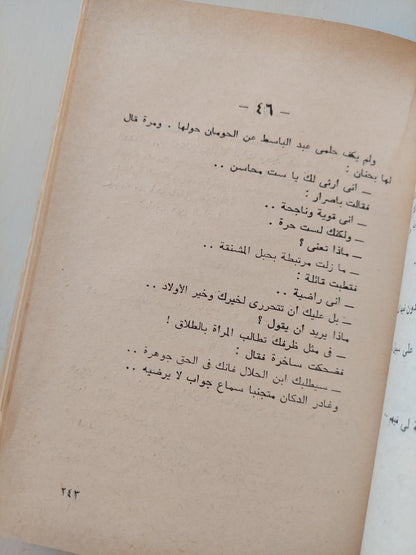 - ٤٦ -
ولم يكف حلمى عبد الباسط عن الحومان حولها . ومرة قال
لها بحنان :
ــ انى ارثى لك يا ست محاسن ..
فقالت باصرار :
ــ انى قوية وناجحة ..
ــ ولكنك لست حرة .
ــ ماذا تعنى ؟
ــ ما زلت مرتبطة بحبل المشنقة ..
فقطبت قائلة :
ــ انى راضية ..
ــ بل عليك أن تتحررى لخيرك وخير الأولاد ..
ماذا يريد أن يقول ؟
ــ فى مثل ظرفك تطالب المرأة بالطلاق !
فضحكت ساخرة فقال :
ــ سيطلبك ابن الحلال فانك فى الحق جوهرة ..
وغادر الدكان متجنبا سماع جواب لا يرضيه ..
٢٤٣